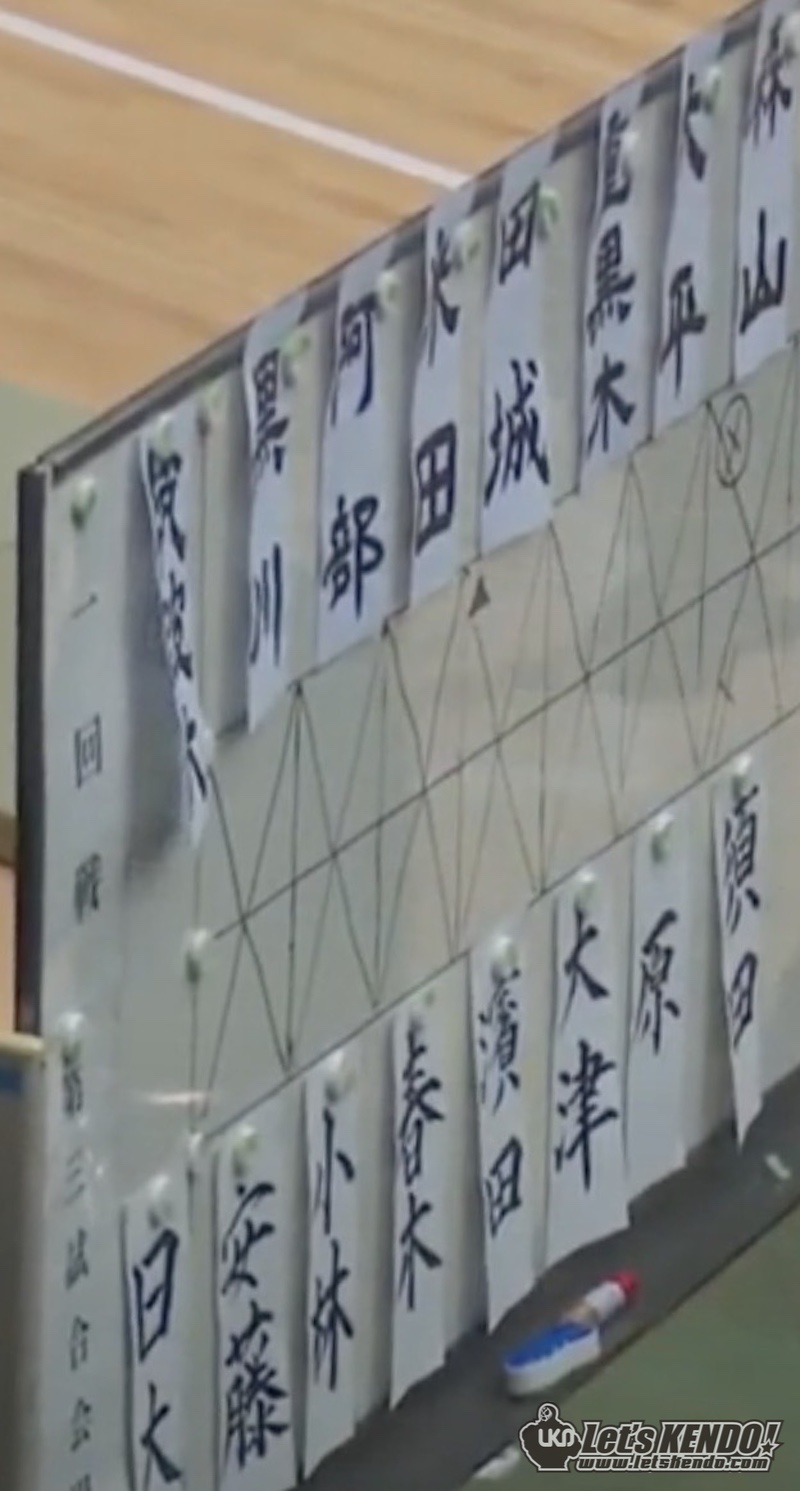 一回戦
第三試合会
筑波大
黒川
阿部
米田
田城
黒木
大平
森山
日大
安藤
小林
春木
濱田
大津
原
須田
UKN Let's KENDO!
www.letskendo.com